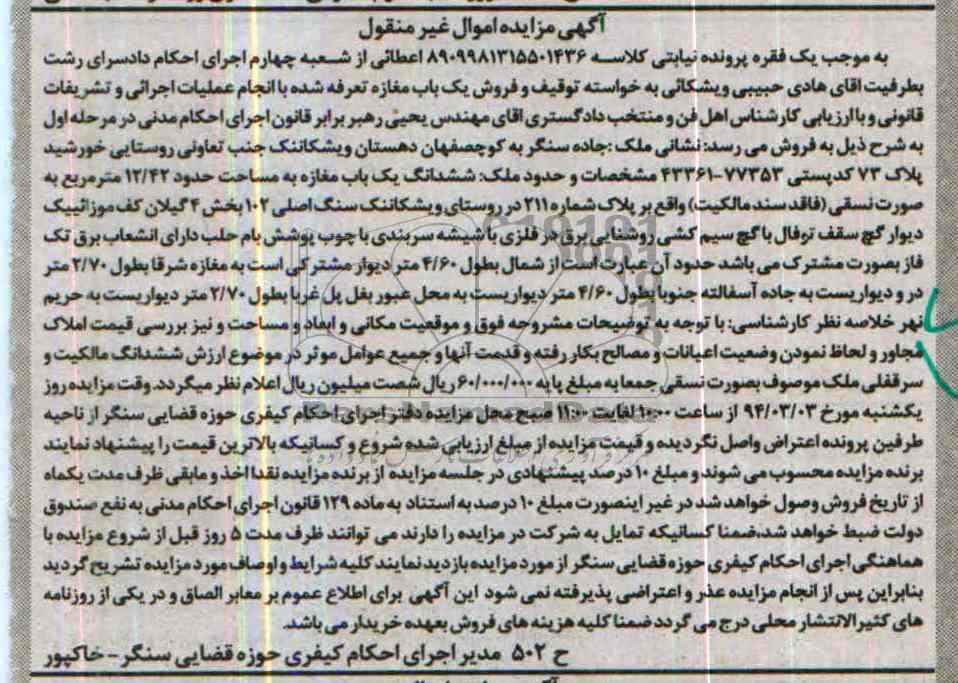 آگهی مزایده اموال غیر منقول
به موجب یک فقره پرونده نیابتی کلاسه ۸۹۰۹۹۸۱۳۱۵۵۰۱۴۳۶ اعطائی از شعبه چهارم اجرای احکام دادسرای رشت
بطرفیت اقای هادی حبیبی ویشکائی به خواسته توقیف و فروش یک باب مغازه تعرفه شده با انجام عملیات اجرائی و تشریفات
قانونی و با ارزیابی کارشناس اهل فن و منتخب دادگستری اقای مهندس یحیی رهبر برابر قانون اجرای احکام مدنی در مرحله اول
به شرح ذیل به فروش می رسد: نشانی ملک :جاده سنگر به کوچصفهان دهستان ویشکاننک جنب تعاونی روستایی خورشید
پلاک ۷۳ کدپستی ۷۷۳۵۳-۴۳۳۶۱ مشخصات و حدود ملک: ششدانگ یک باب مغازه به مساحت حدود ۱۲/۴۲ مترمربع به
صورت نسقی (فاقد سند مالکیت) واقع بر پلاک شماره ۲۱۱ در روستای ویشکاننک سنگ اصلی ۱۰۲ بخش ۴ گیلان کف موزائییک
دیوار گچ سقف توفال با گچ سیم کشی روشنایی برق در فلزی با شیشه سربندی با چوب پوشش بام حلب دارای انشعاب برق تک
فاز بصورت مشترک می باشد حدود آن عبارت است از شمال بطول ۴/۶۰ متر دیوار مشترکی است به مغازه شرقا بطول ۲/۷۰ متر
در و دیواریست به جاده آسفالته جنوبا بطول ۴/۶۰ متر دیواریست به محل عبور بغل پل غربا بطول ۲/۷۰ متر دیواریست به حریم
نهر خلاصه نظر کارشناسی: با توجه به توضیحات مشروحه فوق و موقعیت مکانی و ابعاد و مساحت و نیز بررسی قیمت املاک
مجاور و لحاظ نمودن وضعیت اعیانات و مصالح بکار رفته و قدمت آنها و جمیع عوامل موثر در موضوع ارزش ششدانگ مالکیت و
سرقفلی ملک موصوف بصورت نسقی جمعا به مبلغ پایه ۶۰/۰۰۰/۰۰۰ ریال شصت میلیون ریال اعلام نظر میگردد. وقت مزایده روز
یکشنبه مورخ ۹۴/۰۳/۰۳ از ساعت ۱۰:۰۰ لغایت ۱۱:۰۰ صبح محل مزایده دفتر اجرای احکام کیفری حوزه قضایی سنگر از ناحیه
طرفین پرونده اعتراض واصل نگردیده و قیمت مزایده از مبلغ ارزیابی شده شروع و کسانیکه بالاترین قیمت را پیشنهاد نمایند
برنده مزایده محسوب می شوند و مبلغ ۱۰ درصد پیشنهادی در جلسه مزایده از برنده مزایده نقدا اخذ و مابقی ظرف مدت یکماه
از تاریخ فروش وصول خواهد شد در غیر اینصورت مبلغ ۱۰ درصد به استناد به ماده ۱۲۹ قانون اجرای احکام مدنی به نفع صندوق
دولت ضبط خواهد شد،ضمنا کسانیکه تمایل به شرکت در مزایده را دارند می توانند ظرف مدت ۵ روز قبل از شروع مزایده با
هماهنگی اجرای احکام کیفری حوزه قضایی سنگر از مورد مزایده بازدید نمایند کلیه شرایط و اوصاف مورد مزایده تشریح گردید
بنابراین پس از انجام مزایده عذر و اعتراضی پذیرفته نمی شود این آگهی برای اطلاع عموم بر معابر الصاق و در یکی از روزنامه
های کثیرالانتشار محلی درج می گردد ضمنا کلیه هزینه های فروش بعهده خریدار می باشد.
ح ۵۰۲ مدیر اجرای احکام کیفری حوزه قضایی سنگر - خاکپور